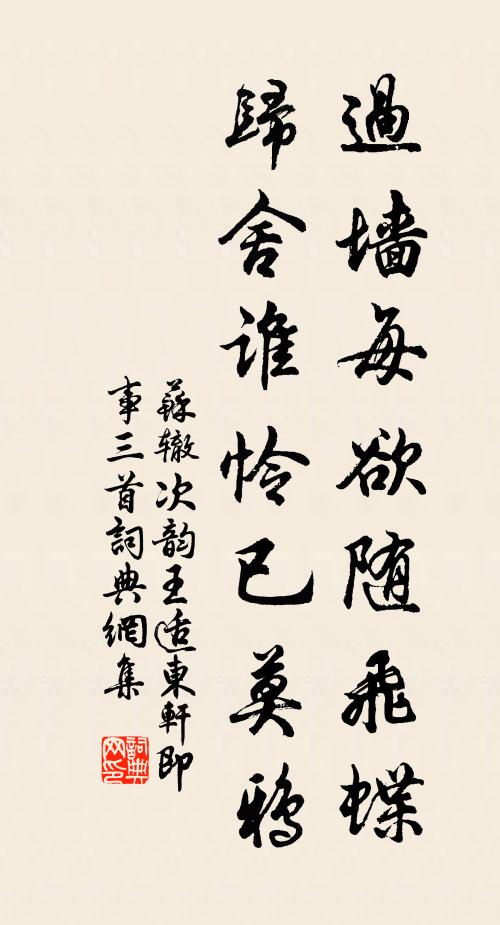 過墻每欲随飛蝶
歸舍谁怜已莫鴉
蘇辙次韵王适東軒即
事三首詞典網集
詞典
网印